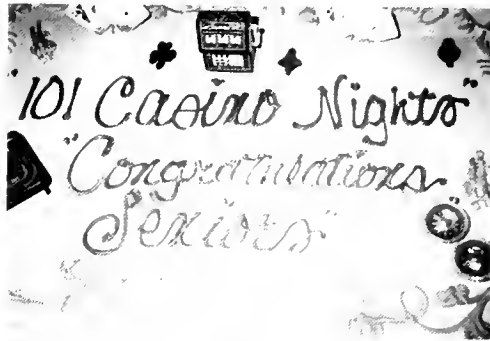 "101 Casino Nights"
"Congratulations
Seniors"